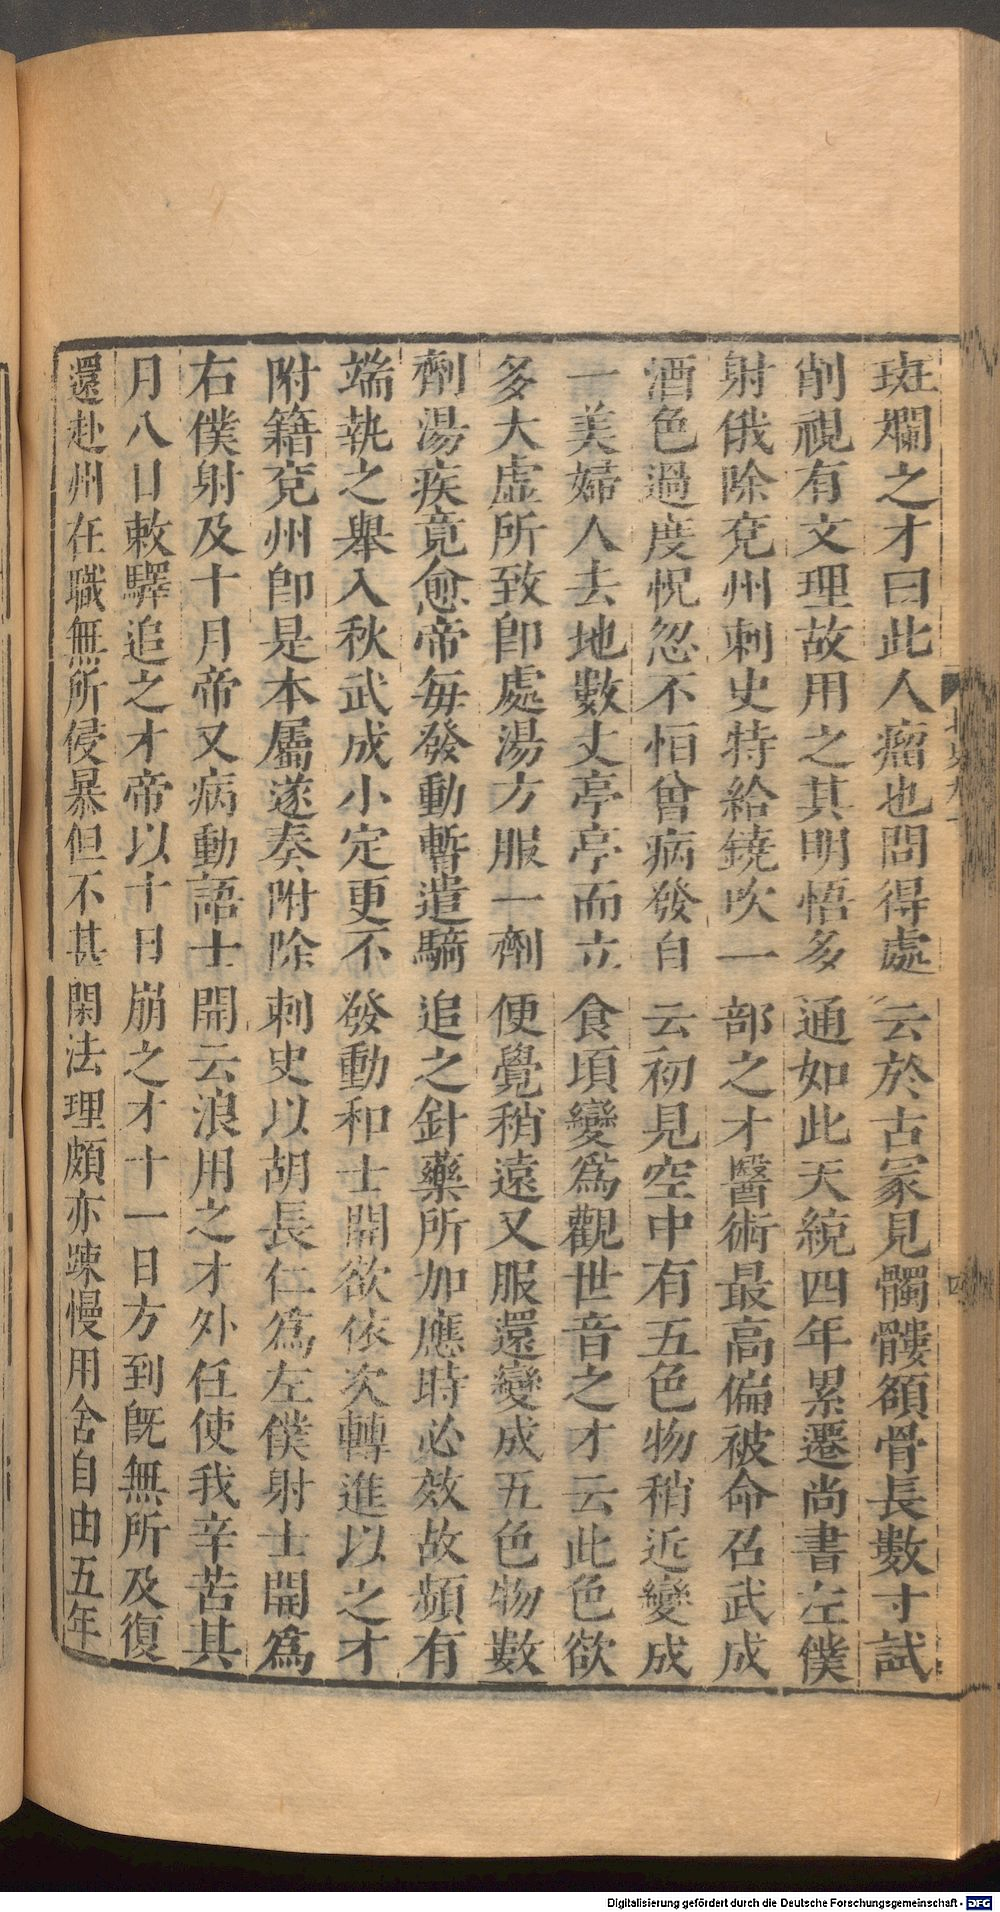 斑斕之才曰此人瘤也問得處云於古冢見髑髏額骨長數寸試
削視有文理故用之其明悟多通如此天統四年累遷尚書左僕
射俄除兗州刺史特給鐃吹一部之才醫術最高偏被命召武成
酒色過度怳忽不恒曾病發自云初見空中有五色物稍近變成
一美婦人去地數丈亭亭而立食頃變爲觀世音之才云此色欲
多大虛所致卽處湯方服一劑便覺稍遠又服還變成五色物數
劑湯疾竟愈帝每發動暫遣騎追之針藥所加應時必效故頻有
端執之舉入秋武成小定更不發動和士開欲依次轉進以之才
附籍兗州卽是本屬遂奏附除刺史以胡長仁爲左僕射士開爲
右僕射及十月帝又病動語士開云浪用之才外任使我辛苦其
月八日敕驛追之才帝以十日崩之才十一日方到旣無所及復
還赴州在職無所侵暴但不甚閑法理頗亦疎慢用舍自由五年
四
Digitalisierung gefördert durch die Deutsche Forschungsgemeinschaft - DFG